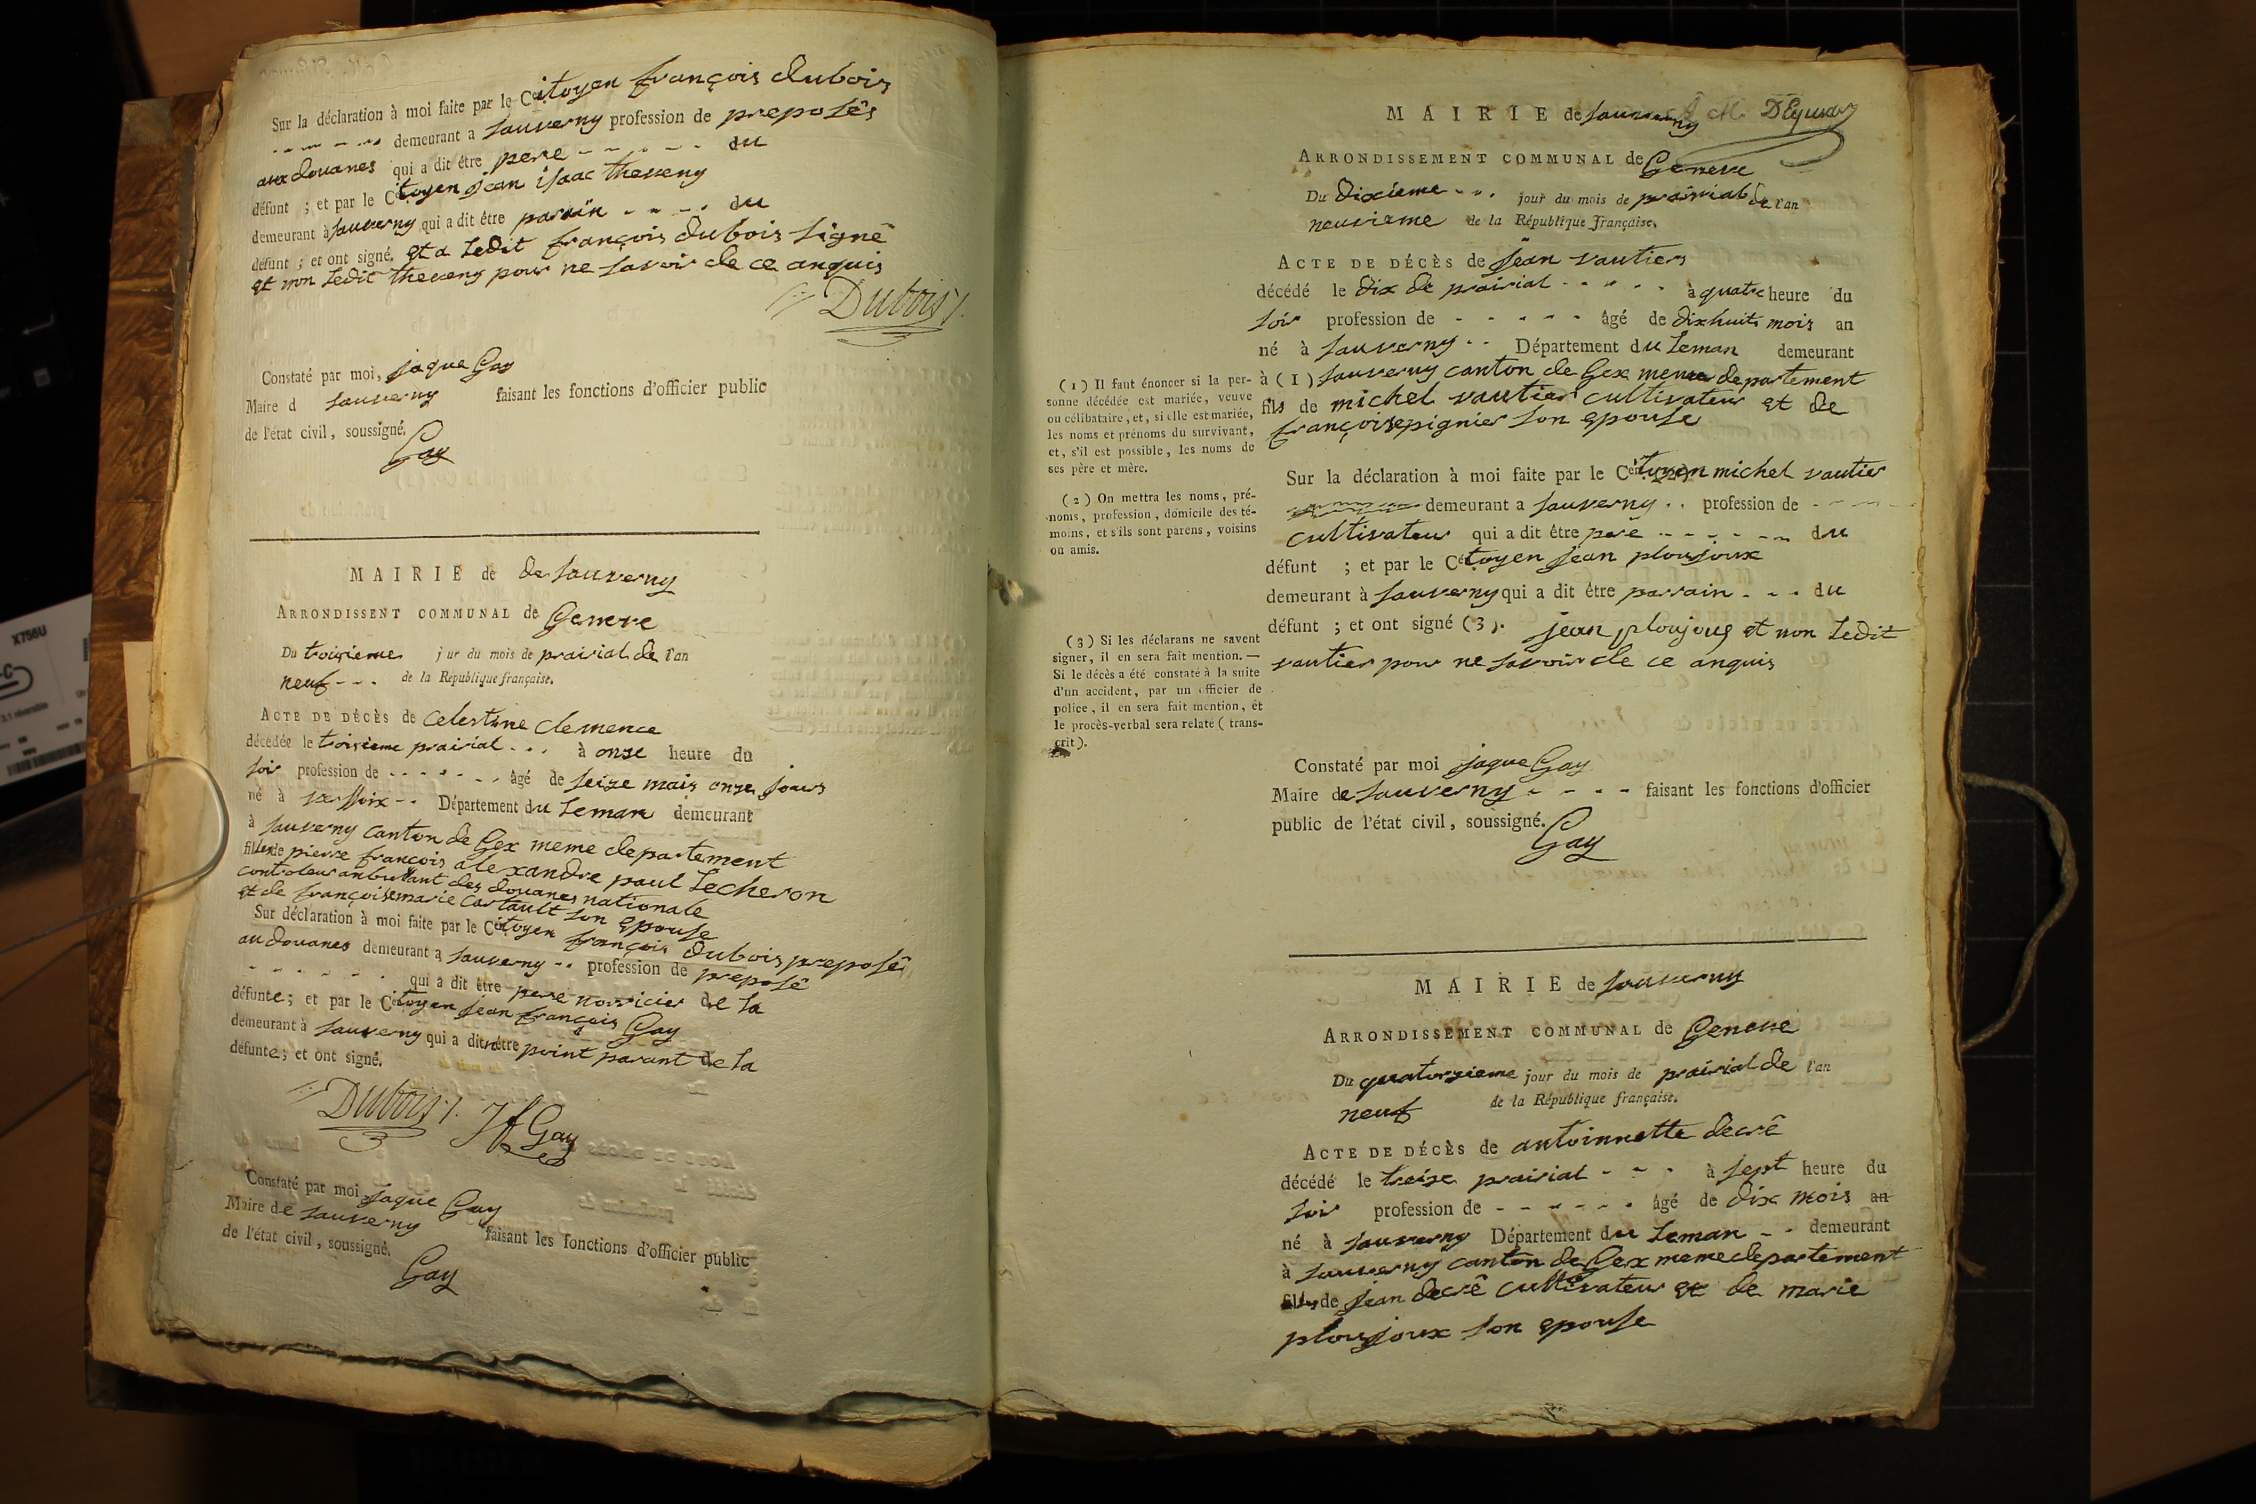 Sur la déclaration à moi faite par le Citoyen françois dubois
demeurant a sauverny profession de preposés
aux douanes qui a dit être pere du
défunt ; et par le Citoyen jean isaac theveny
demeurant à sauverny qui a dit être parain du
défunt ; et ont signé. et a Ledit françois dubois signé
et non Ledit theveny pour ne savoir de ce anquis
Dubois
Constaté par moi, jaque Gay
Maire d sauverny faisant les fonctions d'officier public
de l'état civil, soussigné.
Gay
MAIRIE de de sauverny
ARRONDISSENT COMMUNAL de Geneve
Du troisieme jur du mois de prairial de l'an
neuf de la République française.
ACTE DE DÉCÈS de Celestine Clemence
décédée le troisieme prairial à onse heure du
soir profession de âgé de seize mais onze jours
né à Département du Leman demeurant
à sauverny canton de Gex meme departement
fille de pierre françois alexandre paul Lecheron
controleur anbullant des douanes nationale
et de françoise marie Cartault son epouse
Sur déclaration à moi faite par le Citoyen françois dubois preposé
au douanes demeurant a sauverny profession de preposé
qui a dit être pere noricier de la
défunte; et par le Citoyen jean françois Gay
demeurant à sauverny qui a dit nêtre point parant de la
défunte; et ont signé.
Dubois Jf Gay
Constaté par moi jaque Gay
Maire de sauverny faisant les fonctions d'officier public
de l'état civil, soussigné.
Gay
MAIRIE de sauverny
ARRONDISSEMENT COMMUNAL de Geneve
Du dixieme jour du mois de prairial de l'an
neuvieme de la République française.
ACTE DE DÉCÈS de jean vautiers
décédé le dix de prairial à quatre heure du
soir profession de âgé de dixhuit mois an
né à sauverny Département du Leman demeurant
à (1) sauverny canton de Gex meme departement
fils de michel vautier cultivateur et de
françoise pignier son epouse
Sur la déclaration à moi faite par le Citoyen michel vautier
demeurant a sauverny profession de
cultivateur qui a dit être pere du
défunt ; et par le Citoyen jean ploujoux
demeurant à sauverny qui a dit être parrain du
défunt ; et ont signé (3). jean ploujoug et non Ledit
vautier pour ne savoir de ce anquis
(1) Il faut énoncer si la per-
sonne décédée est mariée, veuve
ou célibataire, et, si elle est mariée,
les noms et prénoms du survivant,
et, s'il est possible, les noms de
ses père et mère.
(2) On mettra les noms, pré-
noms, profession, domicile des té-
moins, et s'ils sont parens, voisins
ou amis.
(3) Si les déclarans ne savent
signer, il en sera fait mention. —
Si le décès a été constaté à la suite
d'un accident, par un officier de
police, il en sera fait mention, et
le procès-verbal sera relaté ( trans-
crit ).
Constaté par moi jaque Gay
Maire de sauverny faisant les fonctions d'officier
public de l'état civil, soussigné.
Gay
MAIRIE de sauverny
ARRONDISSEMENT COMMUNAL de Geneve
Du quatorzieme jour du mois de prairial de l'an
neuf de la République française.
ACTE DE DÉCÈS de antoinnette decré
décédé le treize prairial à sept heure du
soir profession de âgé de dix mois an
né à sauverny Département du Leman demeurant
à sauverny canton de Gex meme departement
fille de jean decré cultivateur et de marie
ploujoux son epouse